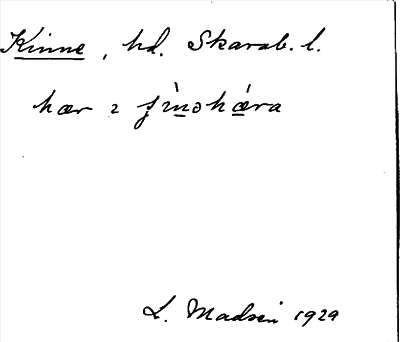 Kinne, hd. Skarab. l.
hær 2 ʃìnɔhǽra
L. Madsén 1929